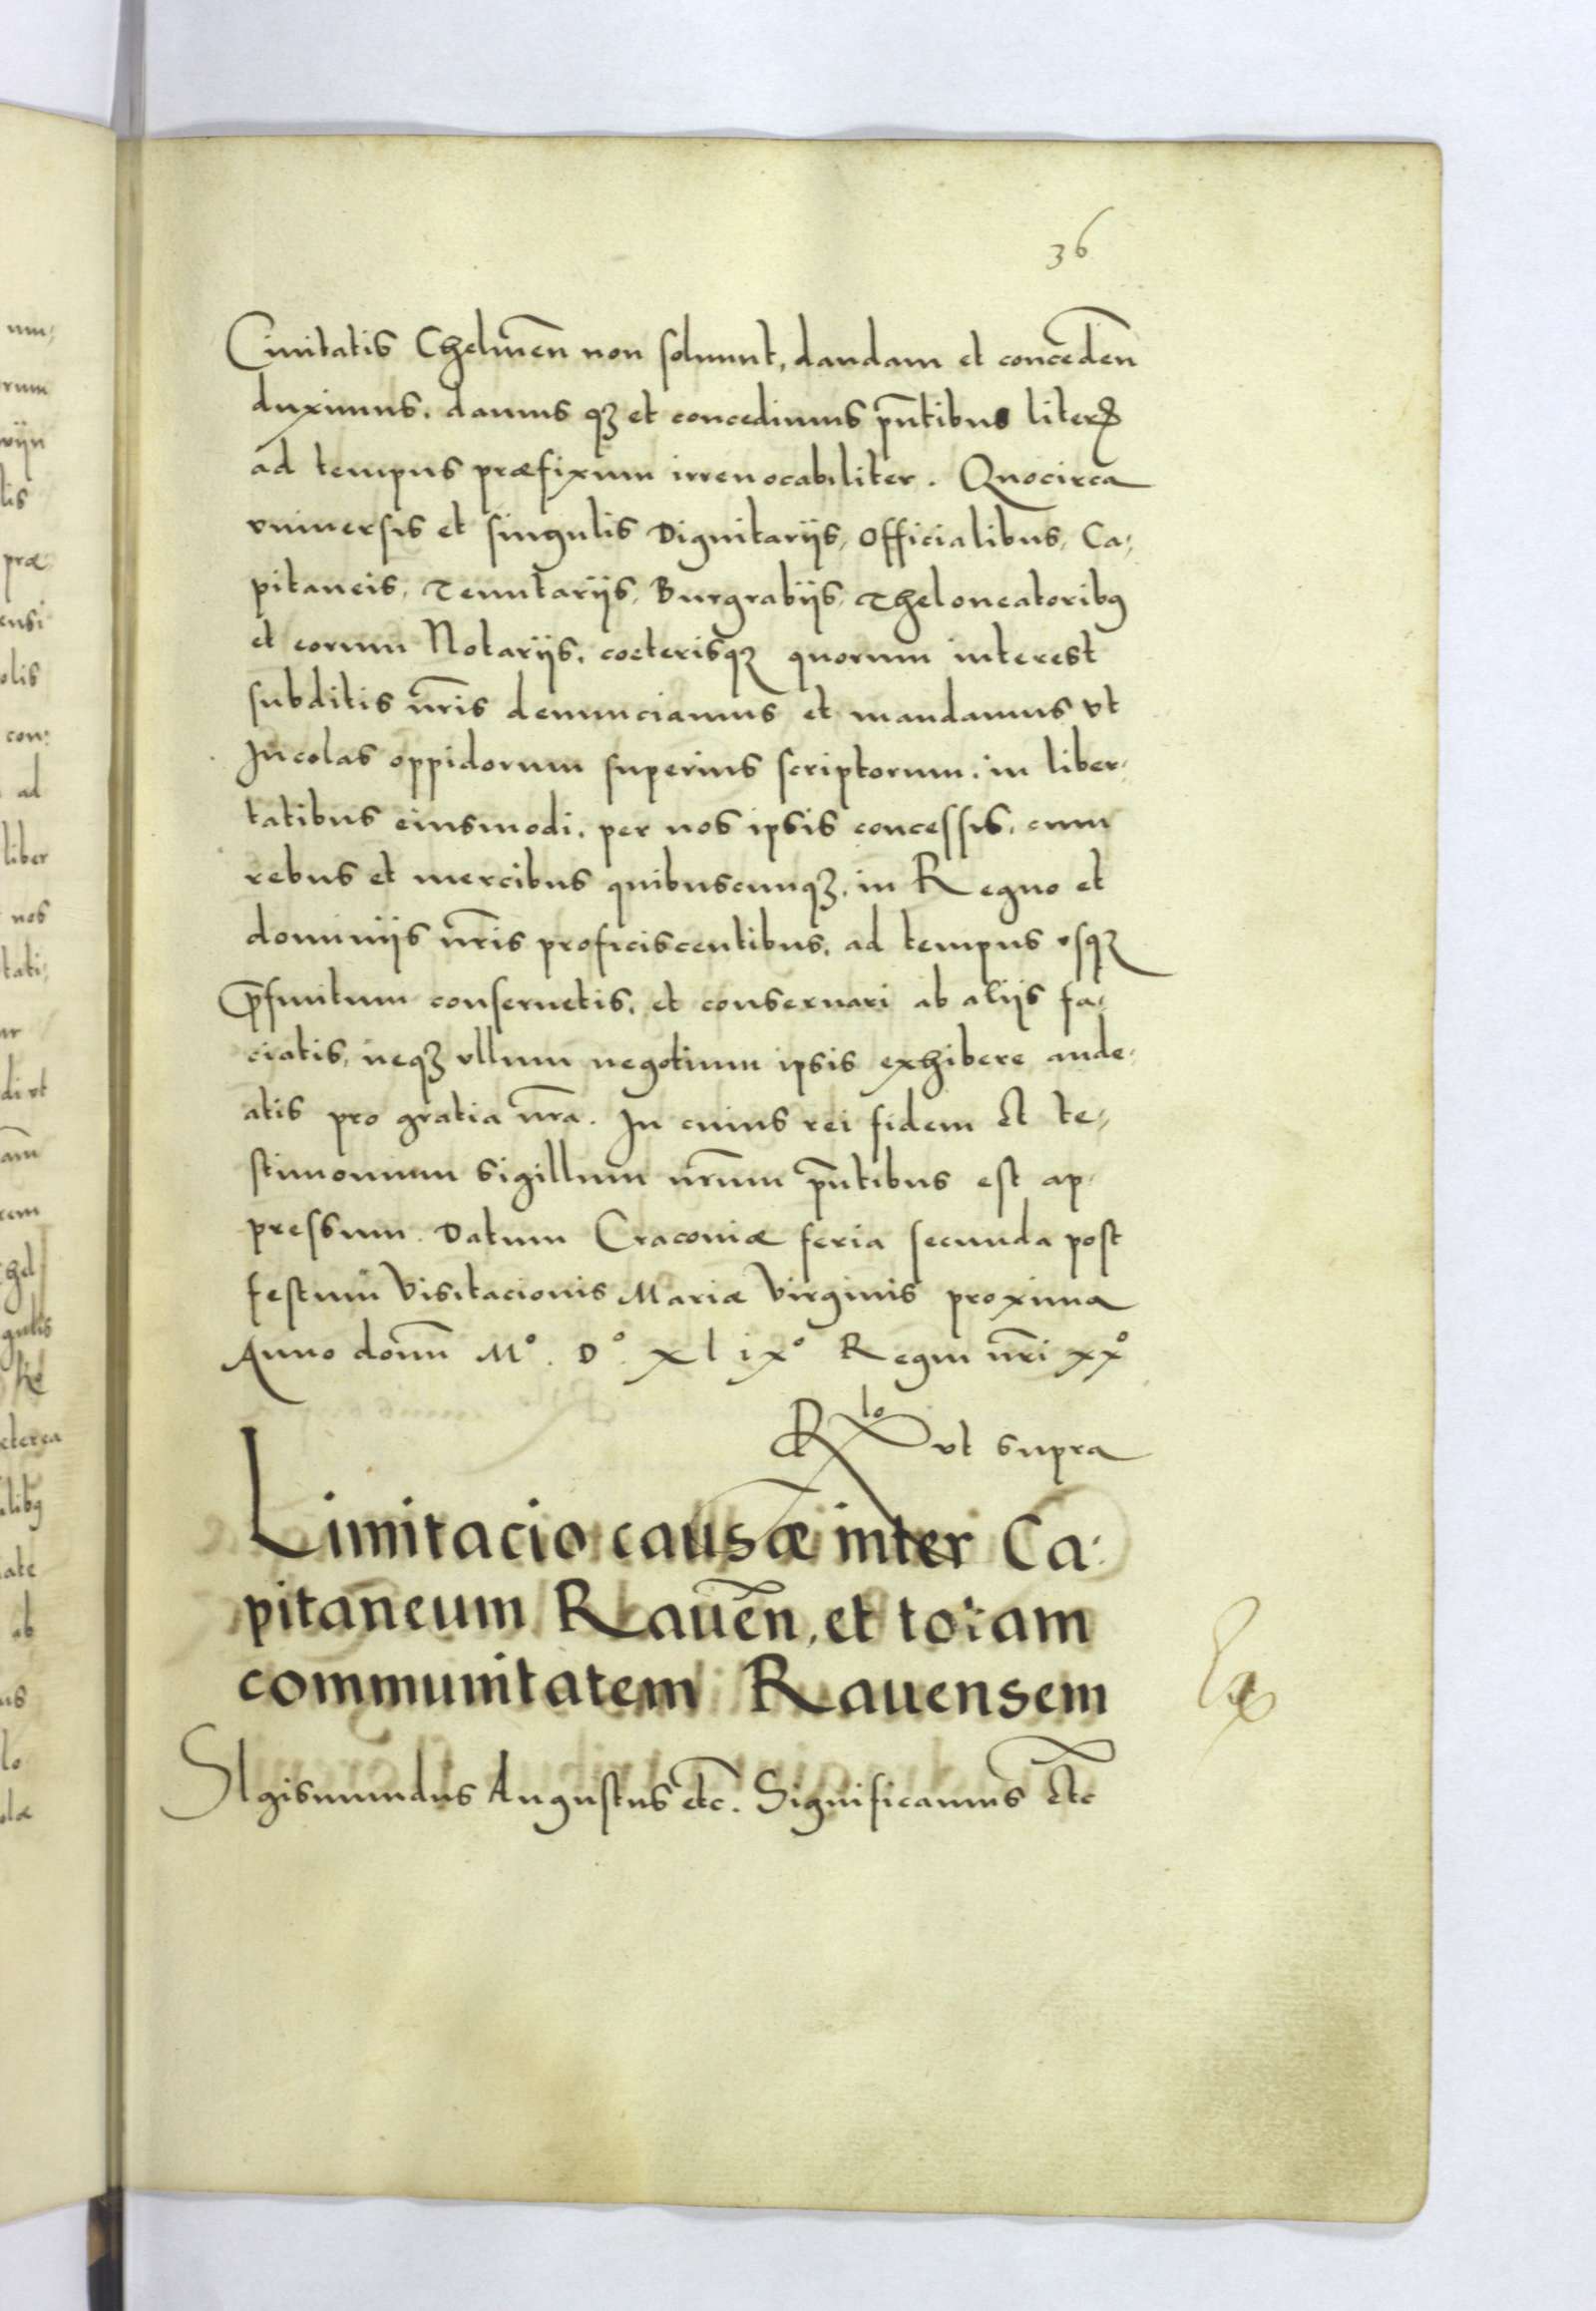 36
Ciuitatis Chelmeñ non soluunt, dandam et concedeñ
duximus, damus qꝫ et concedimus pñtibus literꝭ
ad tempus præfixum irreuocabiliter. Quocirca
vniuersis et singulis Dignitariis, Officialibus, Ca,
pitaneis, Tenutariis, Burgrabiis, Theloneatoribꝰ
et eorum Notariis, coeterisqꝫ quorum interest
subditis nr̃is denunciamus et mandamus vt
Incolas oppidorum superius scriptorum, in liber,
tatibus eiusmodi, per nos ipsis concessis, cum
rebus et mercibus quibuscunqꝫ, in Regno et
dominiis nr̃is proficiscentibus, ad tempus vsqꝫ
p̃finitum conseruetis, et conseruari ab aliis fa,
ciatis, neqꝫ vllum negotium ipsis exhibere aude,
atis pro gratia nr̃a. In cuius rei fidem et te,
stimonium Sigillum nr̃um pñtibus est ap,
pressum. Datum Cracouiæ feria secunda post
festum Visitacionis Mariæ Virginis proxima
Anno domĩ M°. D°. xlix° Regni nr̃i xx°
Rlo vt supra
Limitacio causæ inter Ca:
pitaneum Raueñ, et totam
communitatem Rauensem
SIgismundus Augustus etc̃. Significamus etc̃